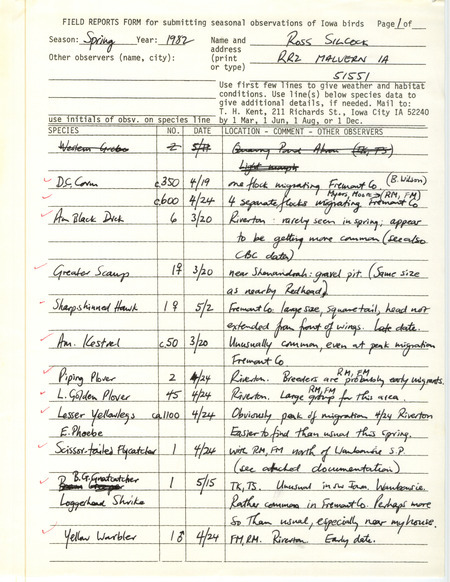 FIELD REPORTS FORM for submitting seasonal observations of Iowa birds Page 1 of
Season: Spring Year: 1982 Name and address (print or type) Ross Silcock
Other observers (name, city): RR2 MALVERN IA
51551
Use first few lines to give weather and habitat
conditions. Use line(s) below species data to
give additional details, if needed. Mail to:
T. H. Kent, 211 Richards St., Iowa City IA 52240
use initials of obsv. on species line by 1 Mar, 1 Jun, 1 Aug, or 1 Dec.
SPECIES NO. DATE LOCATION - COMMENT - OTHER OBSERVERS
Western Grebe 2 5/17 Quarry Pond (TK, TS).
D.C. Corm c350 4/19 one flock migrating Fremont Co. (B. Wilson)
c600 4/24 4 separate flocks migrating Fremont Co Myers, Moore (RM, FM)
Am Black Duck 6 3/20 Riverton: rarely seen in spring; appear
to be getting more common (see also
CBC data)
Greater Scaup 1♀ 3/20 near Shenandoah: gravel pit. (Same size
as nearby Redhead)
Sharpskinned Hawk 1♀ 5/2 Fremont Co. large size, square tail, head not
extended far front of wings. Late date.
Am. Kestrel c.50 3/20 Unusually common, even at peak migration
Fremont Co
Piping Plover 2 4/24 Riverton. Breeders are probably early migrants. RM, FM
L. Golden Plover 45 4/24 Riverton. Large group for this area. RM, FM
Lesser Yellowlegs ca1100 4/24 Obviously peak of migration 4/24 Riverton
E. Phoebe Easier to find than usual this Spring.
Scissor-tailed Flycatcher 1 4/24 with RM, FM north of Waubonsie S.P.
(see attached documentation)
B.G. Gnatcatcher 1 5/15 TK, TS. Unusual in sw Iowa. Waubonsie.
Loggerhead Shrike Rather common in Fremont Co. Perhaps more
so than usual, especially near my house.
Yellow Warbler 1♂ 4/24 FM, RM. Riverton. Early date.